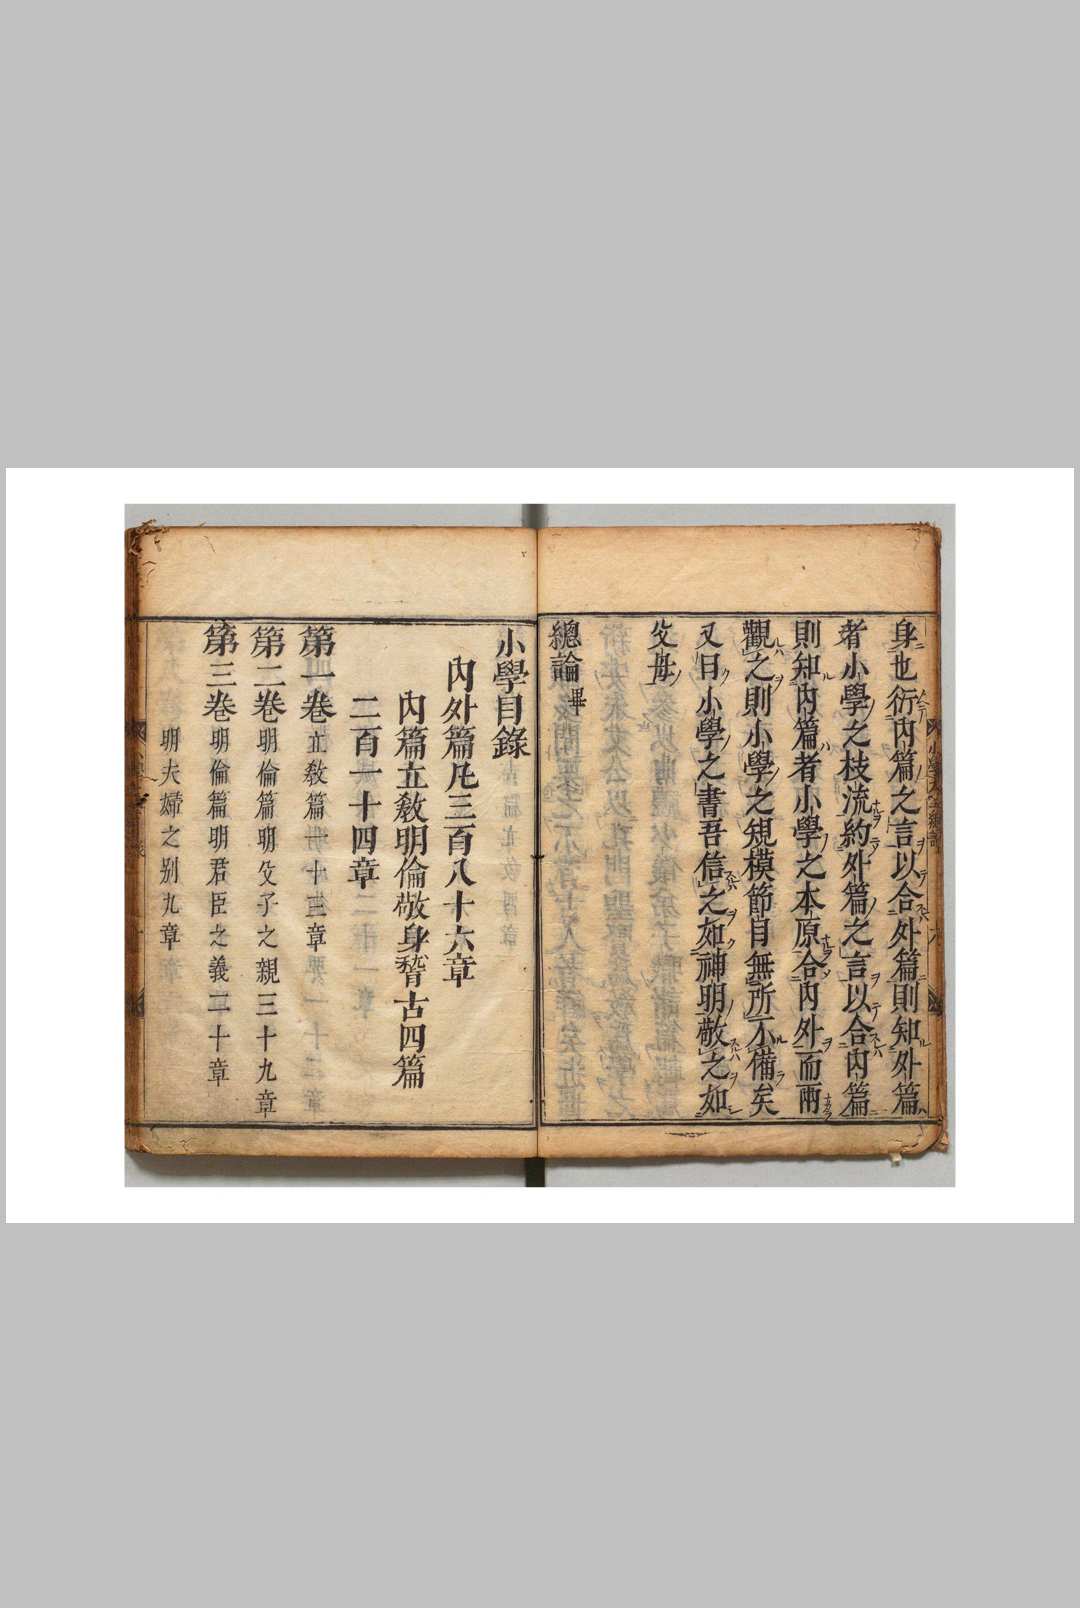 身也衍内篇之言以合外篇則知外篇
者小學之枝流約外篇之言以合内篇
則知内篇者小學之本原合内外而兩
觀之則小學之䂓模節目無所不備矣
又曰小學之書吾信之如神明敬之如
父母
總論畢
小學目錄
内外篇凡三百八十六章
内篇立敎明倫敬身稽古四篇
二百一十四章
第一卷立敎篇一十三章
第二卷明倫篇明父子之親三十九章
第三卷明倫篇明君臣之義二十章
明夫婦之别九章